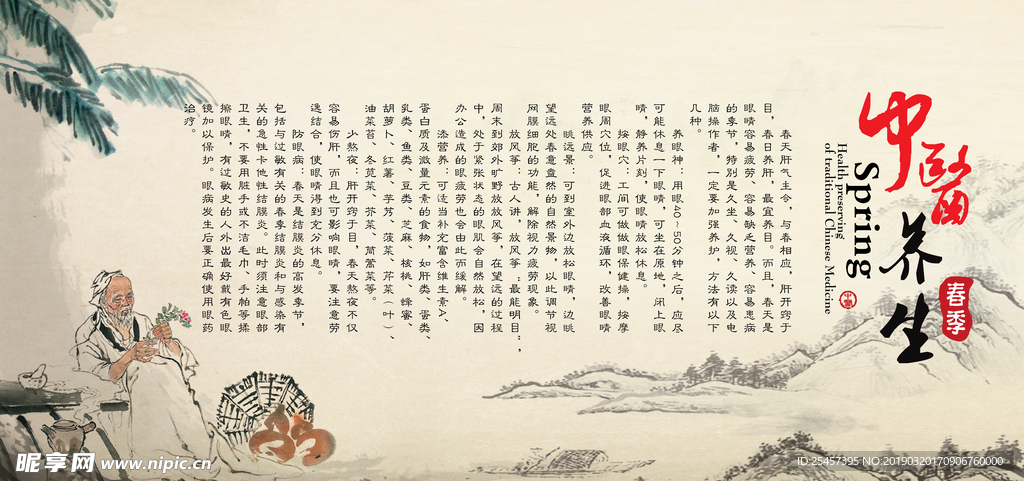 中醫养生
春季
Spring
Health preserving
of traditional Chinese Medicine
春天肝气主令，与春相应，肝开窍于
目，春日养肝，最宜养目。而且，春天是
眼睛容易疲劳、容易缺乏营养、容易患病
的季节，特别是久坐、久视、久读以及电
脑操作者，一定要加强养护，方法有以下
几种。
养眼神：用眼40～50分钟之后，应尽
可能休息一下眼睛，可坐在原地，闭上眼
睛，静养片刻，使眼睛放松休息。
按眼穴：工间可做做眼保健操，按摩
眼周穴位，促进眼部血液循环，改善眼睛
营养供应。
眺远景：可到室外边放松眼睛，边眺
望远处春意盎然的自然景物，以此调节视
网膜细胞的功能，解除视力疲劳现象。
放风筝：古人讲，放风筝“最能明目”，
周末到郊外旷野放放风筝，在望远的过程
中，处于紧张状态的眼肌会自然放松，因
办公造成的眼疲劳也会由此而缓解。
添营养：可适当补充富含维生素A、
蛋白质及微量元素的食物，如肝类、蛋类、
乳类、鱼类、豆类、芝麻、核桃、蜂蜜、
胡萝卜、红薯、芋艿、菠菜、芹菜（叶）、
油菜苔、冬苋菜、荠菜、茼蒿菜等。
少熬夜：肝开窍于目，春天熬夜不仅
容易伤肝，而且也可影响眼睛，要注意劳
逸结合，使眼睛得到充分休息。
防眼病：春天是结膜炎的高发季节，
包括与过敏有关的春季结膜炎和与感染有
关的急性卡他性结膜炎。此时须注意眼部
卫生，不要用脏手或不洁毛巾、手帕等揉
擦眼睛，有过敏史的人外出最好戴有色眼
镜加以保护。眼病发生后要正确使用眼药
治疗。
昵享网 www.nipic.cn
ID:25457395 NO:20190320170906760000